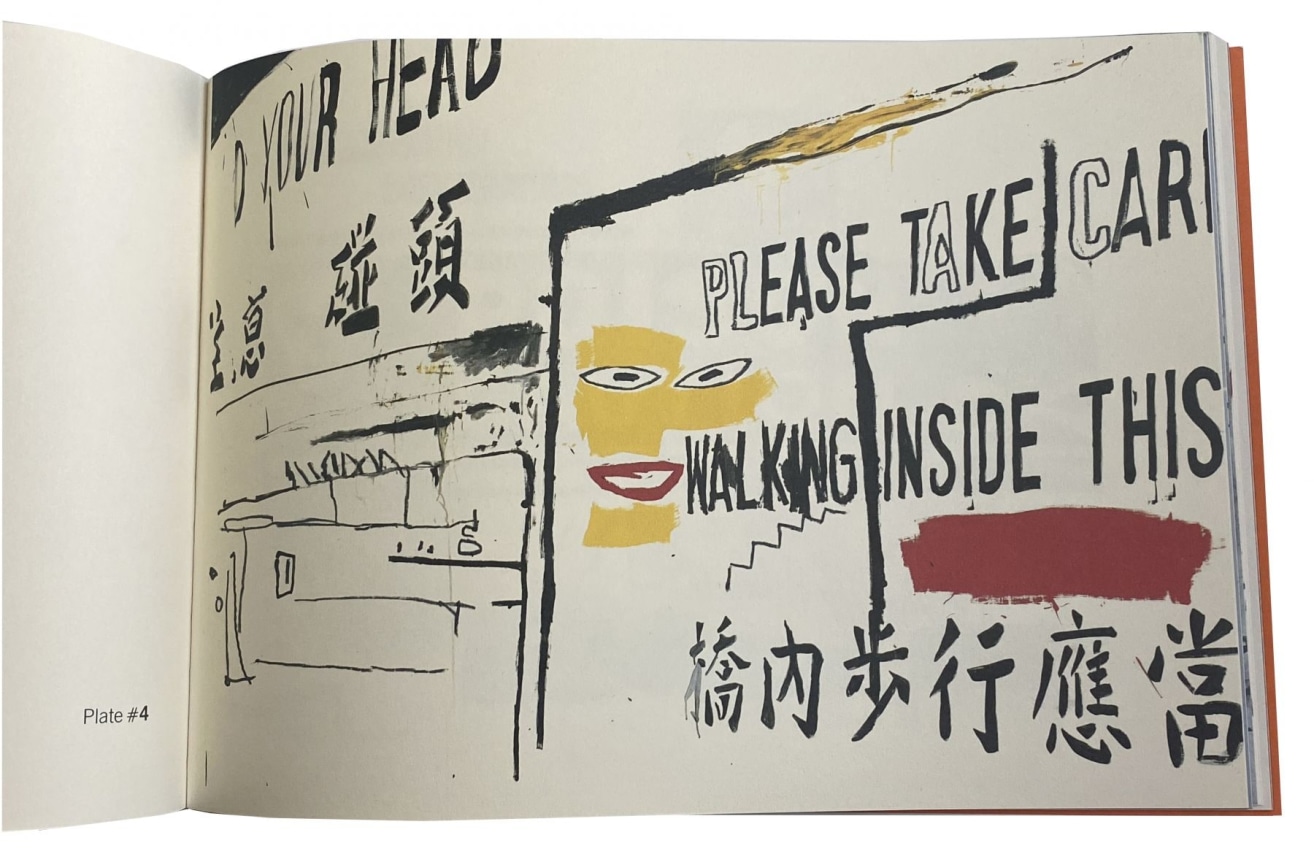 D YOUR HEAD
意 碰 頭
PLEASE TAKE CAR
WALKING INSIDE THIS
橋內步行應當
Plate #4